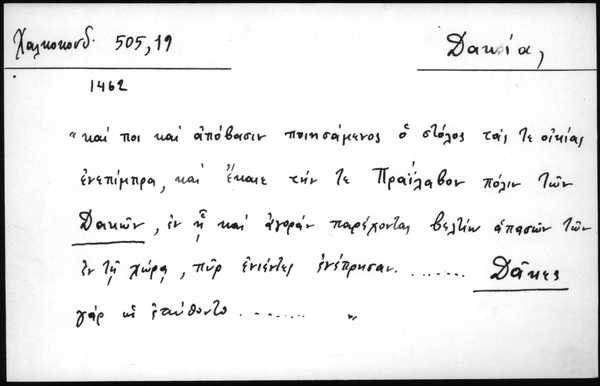 Χαλκοκονδ. 505,19
Δακία,
1462
"καί ποι καί ἀπόβασιν ποιησάμενος ὁ στόλος τάς τε οἰκίας
ἐνεπίμπρα, καί ἔκαιε τήν τε Πραΐλαβον πόλιν τῶν
Δακῶν, ἐν ᾗ καί ἀγοράν παρέχονται βελτίω ἁπασῶν τῶν
ἐν τῇ χώρᾳ, πῦρ ἐνιέντες ἐνέπρησαν. ....... Δᾶκες
γάρ οἱ ........ "